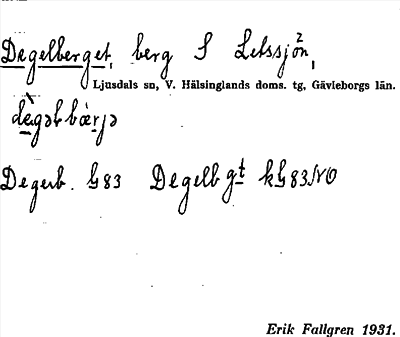 Degelberget, berg S Letssjön,
Ljusdals sn, V. Hälsinglands doms. tg, Gävleborgs län.
dègəlbæ̀rjə
Degerb. G83 Degelbgt kG83NO
Erik Fallgren 1931.